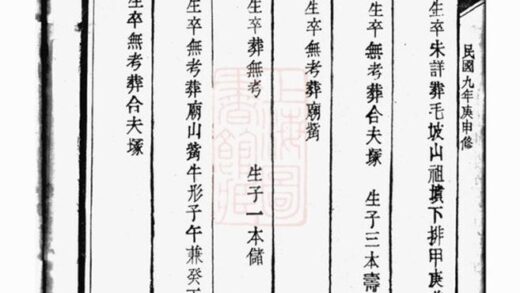 民國九年庚申修
生卒未詳葬毛坡山祖墳下排甲庚
生卒無考葬合夫塚 生子三本壽
生卒無考葬廟嘴
生卒葬無考 生子一本儲
生卒無考葬廟山嘴牛形子午兼癸丁
生卒無考葬合夫塚
上海圖書館藏